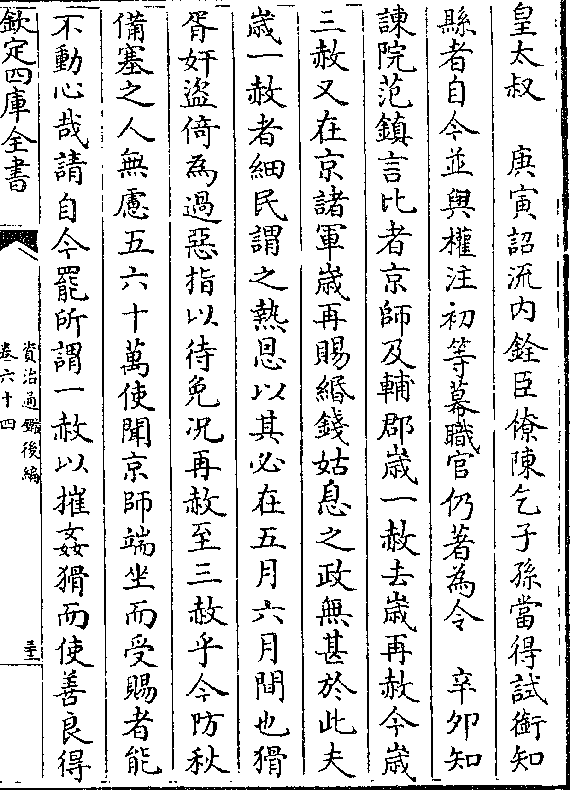 皇太叔　庚寅詔流内銓臣僚陳乞子孫當得試銜知
縣者自今並與權注初等幕職官仍著為令　辛夘知
諫院范鎮言比者京師及輔郡歳一赦去歳再赦今歳
三赦又在京諸軍歳再賜緡錢姑息之政無甚於此夫
歳一赦者細民謂之熱恩以其必在五月六月間也猾
胥奸盜倚為過惡指以待免况再赦至三赦乎今防秋
備塞之人無慮五六十萬使聞京師端坐而受賜者能
不動心哉請自今罷所謂一赦以摧姦猾而使善良得
欽定四庫全書
資治通鑑後編
卷六十四